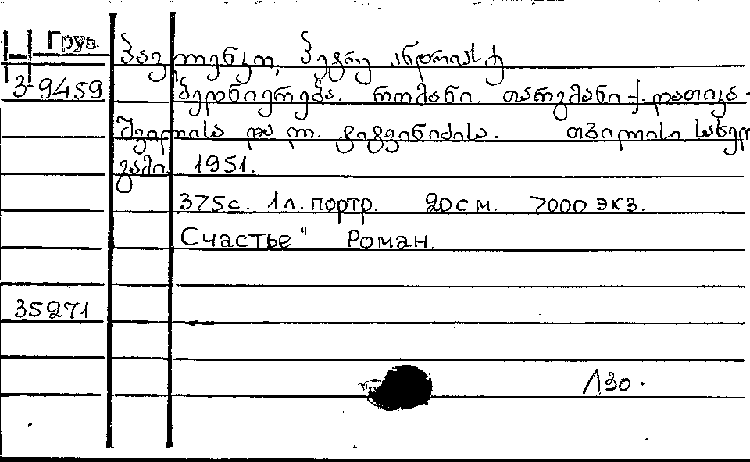 Груз.
პავლენკო, პეტრე
3-9459
ბედნიერება. რომანი. თარგმანი
შვილისა და ლ. თბილისი, სახელ-
გამი. 1951.
375с. 1л. портр. 20см. 7000 экз.
Счастье" Роман.
35271
130.